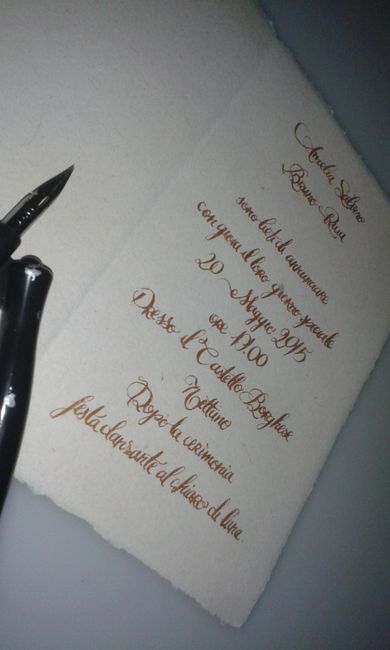 Amelia Salerno
Bruno Riva
sono lieti di annunciare
con gioia il loro giorno speciale
20 Maggio 2015
ore 17.00
Presso il Castello Borghese
Nettuno
Dopo la cerimonia
festa danzante al chiaro di luna